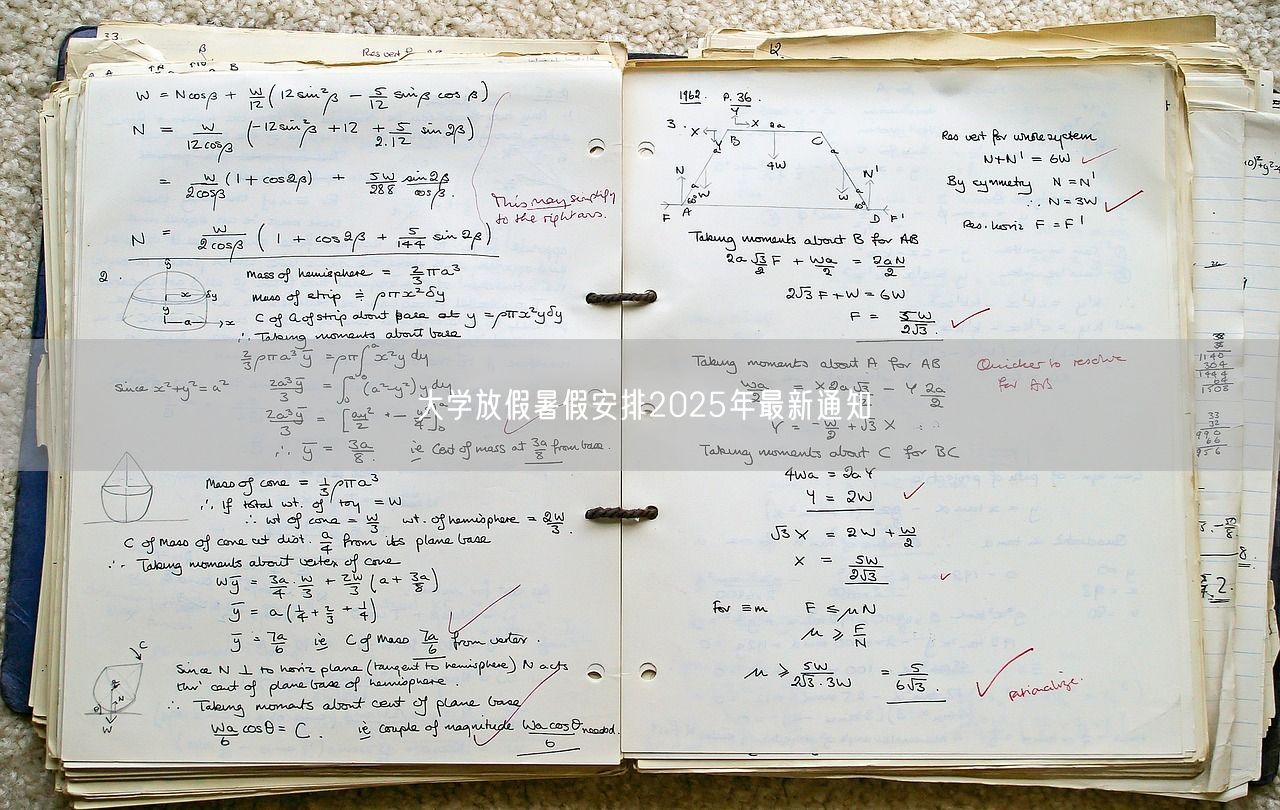 33.
β
A
B
W = Ncosβ + W/12 (12 sin²β − 5/12 sinβ cosβ)
N = W/12cosβ (−12sin²β + 12 + 5/2.12 sin2β)
= W/2cosβ (1 + cos2β) + 5W/288 sin2β/cosβ.
This may simplify
to the right ans.
N = W/2cosβ (1 + cos2β + 5/144 sin2β)
2.
y
x δy
y
a x
Mass of hemisphere = 2/3 πa³
Mass of strip ≑ ρπx²δy
C of G of strip about base at y = ρπx²yδy
∴ Taking moments about base
2/3 ρπa³ȳ = ρπ∫₀ᵃ x²y dy
Since x²+y²=a² 2a³ȳ/3 = ∫₀ᵃ (a²−y²)y dy
大学放假暑假安排2025年最新通知
∴ ȳ = 3a/8. ie Cent of mass at 3a/8 from base.
Mass of cone = 1/3 ρπa³
∴ If total wt. of toy = W
∴ wt of cone = W/3 wt. of hemisphere = 2W/3.
C of Mass of cone at dist. a/4 from its plane base
∴ Taking moments about vertex of cone
Wȳ = 3a/4 . W/3 + 2W/3 (a + 3a/8)
ȳ = a(1/4 + 2/3 + 1/4)
ȳ = 7a/6 ie C of Mass 7a/6 from vertex.
C
N
θ
W
Since N ⊥ to horiz plane (tangent to hemisphere) N acts
thro' cent of plane base of hemisphere.
∴ Taking moments about cent of plane base
Wa/6 cosθ = C. ie couple of magnitude Wa cosθ/6 needed.
12.
1962. P.36.
3.
Y
X X 2a
B C
a a
4W
N N'
a W W a
60° 60°
F A D F'
Res vert for whole system
N+N' = 6W
By symmetry N = N'
∴ N = 3W
Res. horiz F = F'
Taking moments about B for AB
2a √3/2 F + Wa/2 = 2aN/2
2√3 F + W = 6W
F = 5W/2√3.
Taking moments about A for AB
Quicker to resolve
for AB
Wa/2 = X 2a √3/2 − Y 2a/2
Y = −W/2 + √3 X
Taking moments about C for BC
4Wa = 2aY
Y = 2W
√3 X = 2W + W/2
X = 5W/2√3
For ≡m F ≤ μN
μ ≥ F/N
μ ≥ 5W/2√3.3W = 5/6√3.
rationalize.
38
1140
304
1444
64
1508
33
32
990
66
956
8.
2.